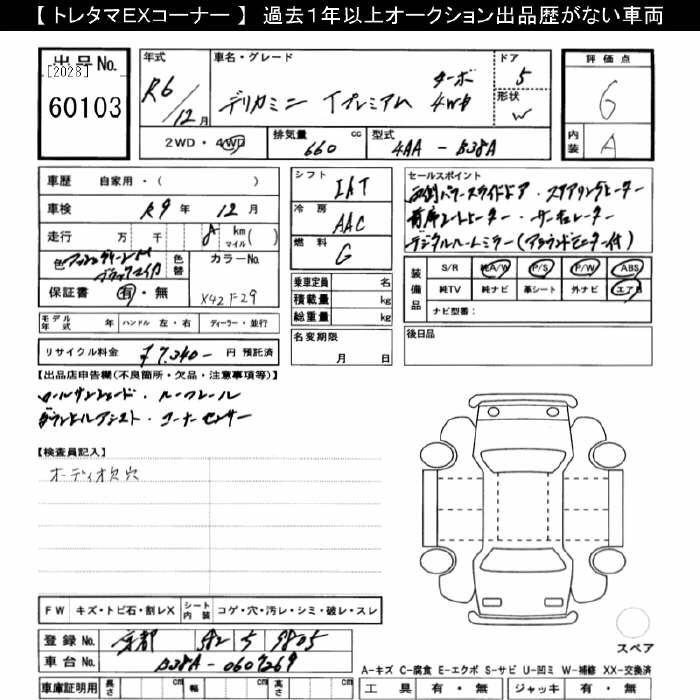 【 トレタマEXコーナー 】 過去1年以上オークション出品歴がない車両
出品No.
[2028]
60103
年式
R6/12月
車名・グレード
デリカミニ Tプレミアム ターボ 4WD
ドア
5
形状
W
評価点
6
内装
A
2WD・4WD
排気量 660 cc
型式 4AA - B38A
車歴 自家用・( )
車検 R9年 12月
走行 万 千 8 km マイル ( )
色
色替
カラーNo.
X42 F29
保証書 有・無
シフト IAT
冷房 AAC
燃料 G
乗車定員 名
積載量 kg
総重量 kg
名変期限
月 日
セールスポイント
両側パワースライドドア・ステアリングヒーター
前席シートヒーター・サーキュレーター
デジタルルームミラー(アラウンドモニター付)
装備品
S/R 純A/W P/S P/W ABS
純TV 純ナビ 革シート 外ナビ エアB
ナビ型番:
後日品
モデル年式 年 ハンドル 左・右 ディーラー・並行
リサイクル料金 ¥7,340- 円 預託済
【出品店申告欄(不良箇所・欠品・注意事項等)】
ロールサンシェード・ルーフレール
ダウンヒルアシスト・コーナーセンサー
【検査員記入】
オーディオ欠穴
FW キズ・トビ石・割レX シート内装 コゲ・穴・汚レ・シミ・破レ・スレ
登録No. 京都 582 う 9805
車台No. B38A-0607269
車庫証明用 長さ cm 幅 cm 高さ cm
スペア
A-キズ C-腐食 E-エクボ S-サビ U-凹ミ W-補修 XX-交換済
工具 有・無 ジャッキ 有・無